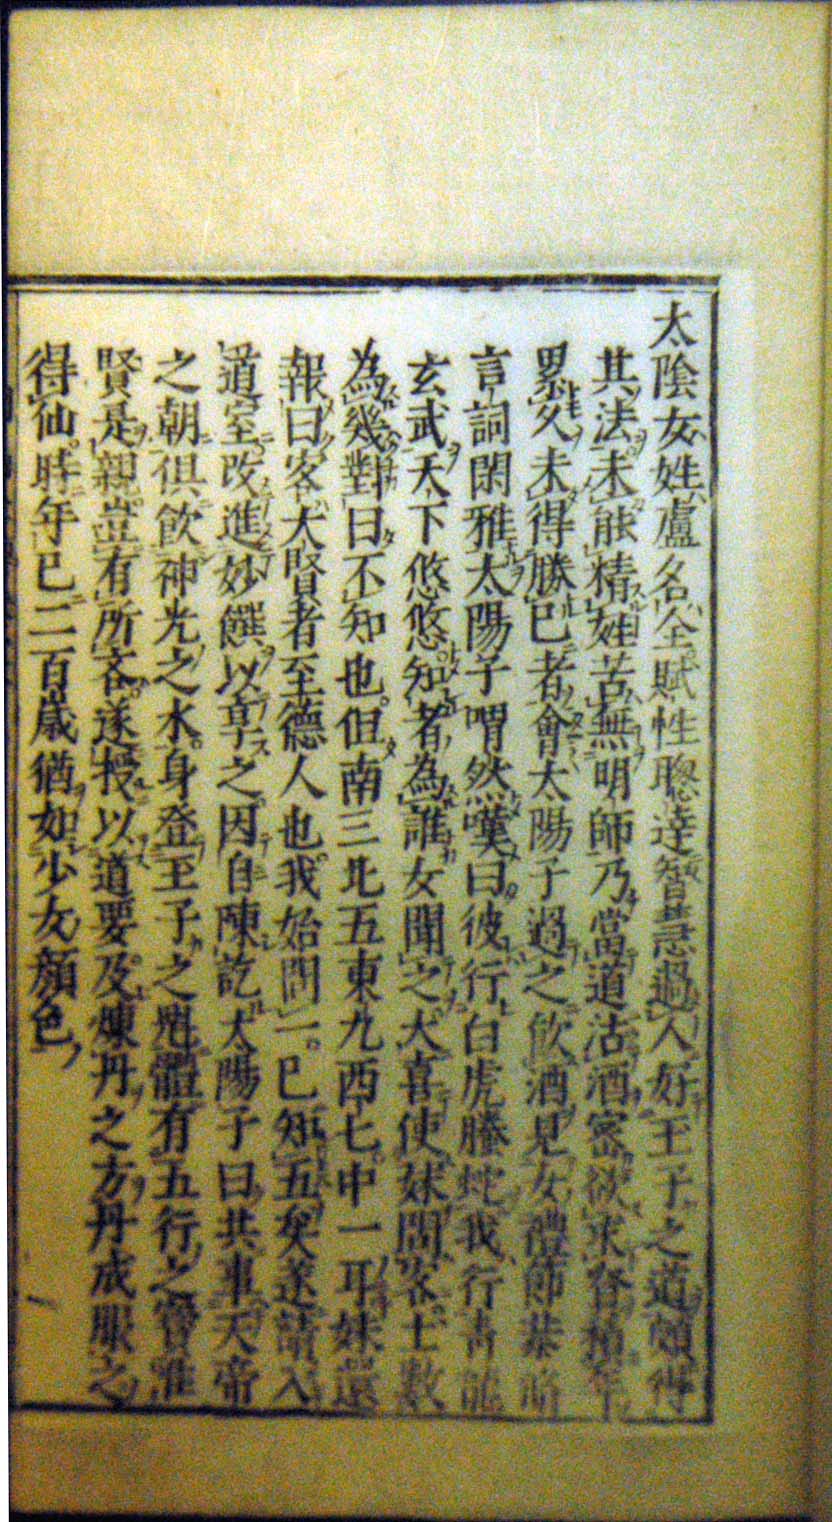 太陰女姓盧名全賦性聰達智慧過人好王子之道頗得
其法未能精姓苦無明師乃當道沽酒密欲求容積年
累久未得勝已者會太陽子過之飲酒見女禮節恭
言詞閑雅太陽子喟然嘆曰彼行白虎螣蛇我行青龍
玄武天下悠悠知者為誰女聞之大喜使妹問客土數
為幾對曰不知也但南三北五東九西七中一耳妹還
報曰客大賢者至德人也我始問一已知五矣遂請入
道室改進妙饌以享之因自陳訖太陽子曰共事天帝
之朝俱飲神光之水身登王子之體有五行之寶惟
賢是親豈有所吝遂授以道要及煉丹之方丹成服之
得仙時年已二百歲猶如少女顏色